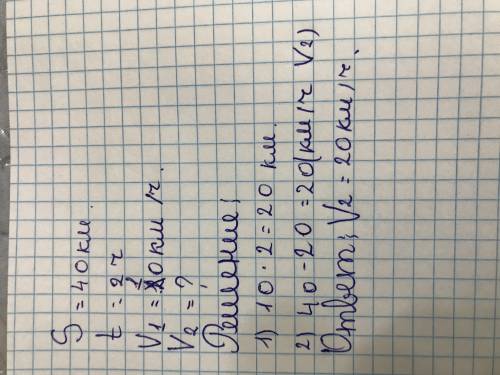 S = 40 км.
t = 2 ч
V1 = 10 км/ч.
V2 = ?
Решение:
1) 10 · 2 = 20 км.
2) 40 - 20 = 20 (км/ч V2)
Ответ: V2 = 20 км/ч.